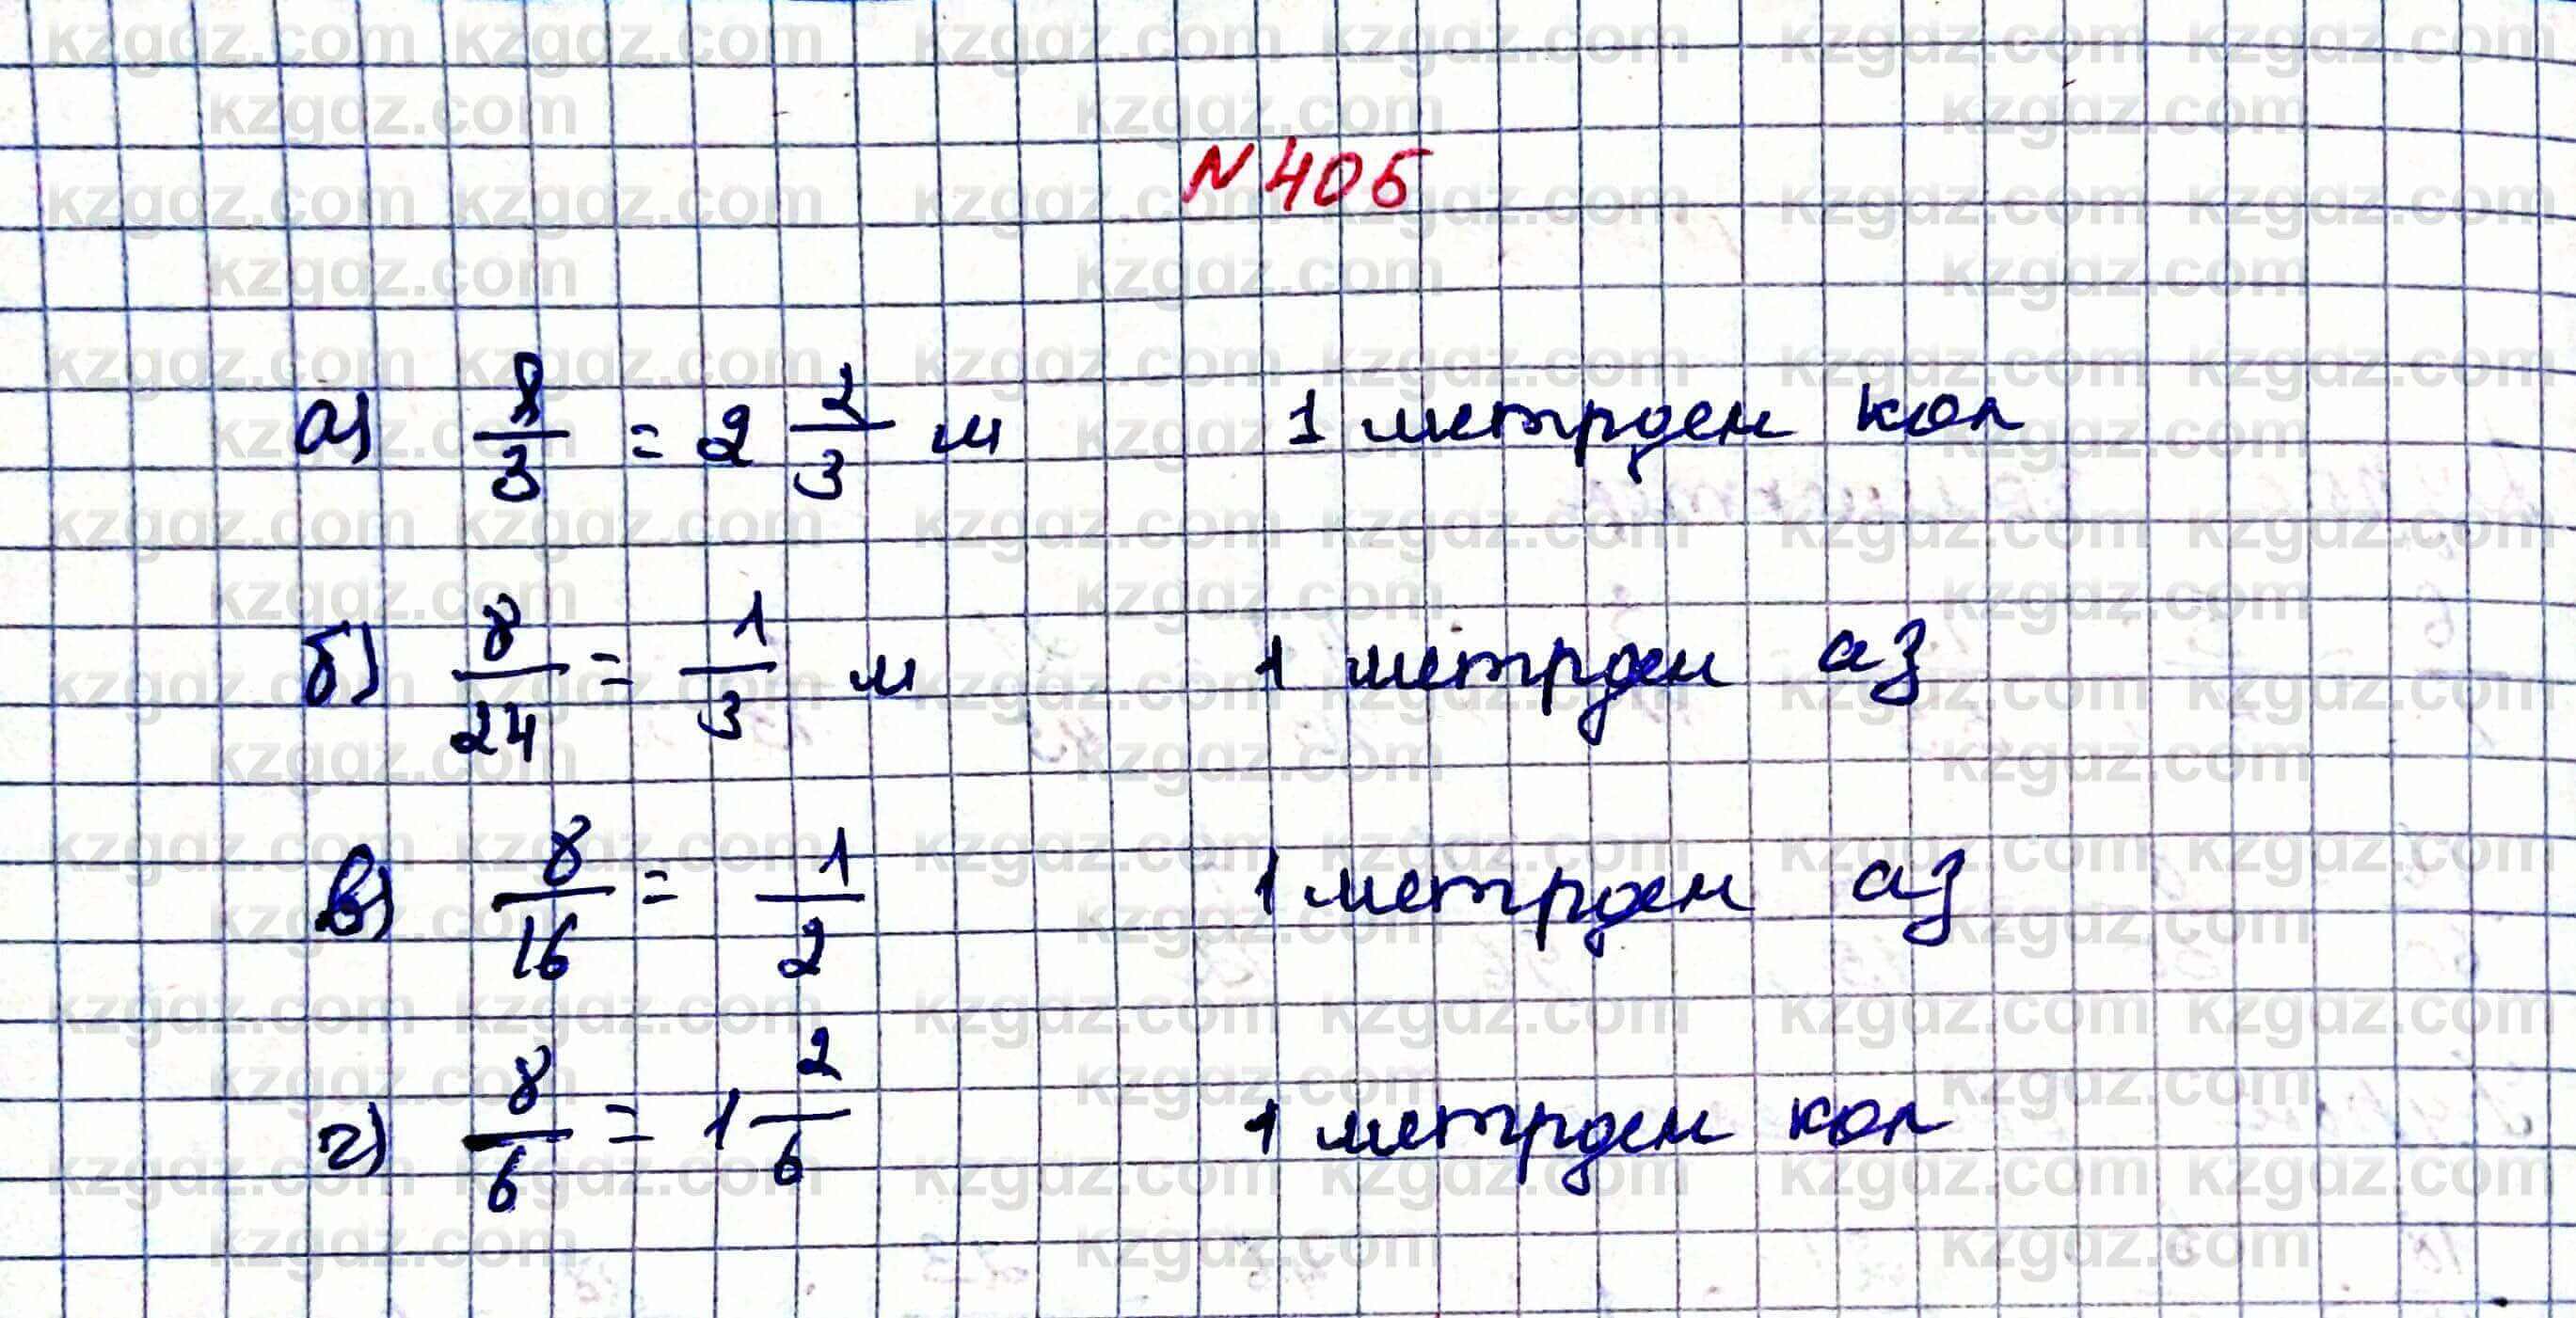 N 405
а) 8/3 = 2 2/3 м 1 метрден көп
б) 8/24 = 1/3 м 1 метрден аз
в) 8/16 = 1/2 1 метрден аз
г) 8/6 = 1 2/6 1 метрден көп
kzgdz.com